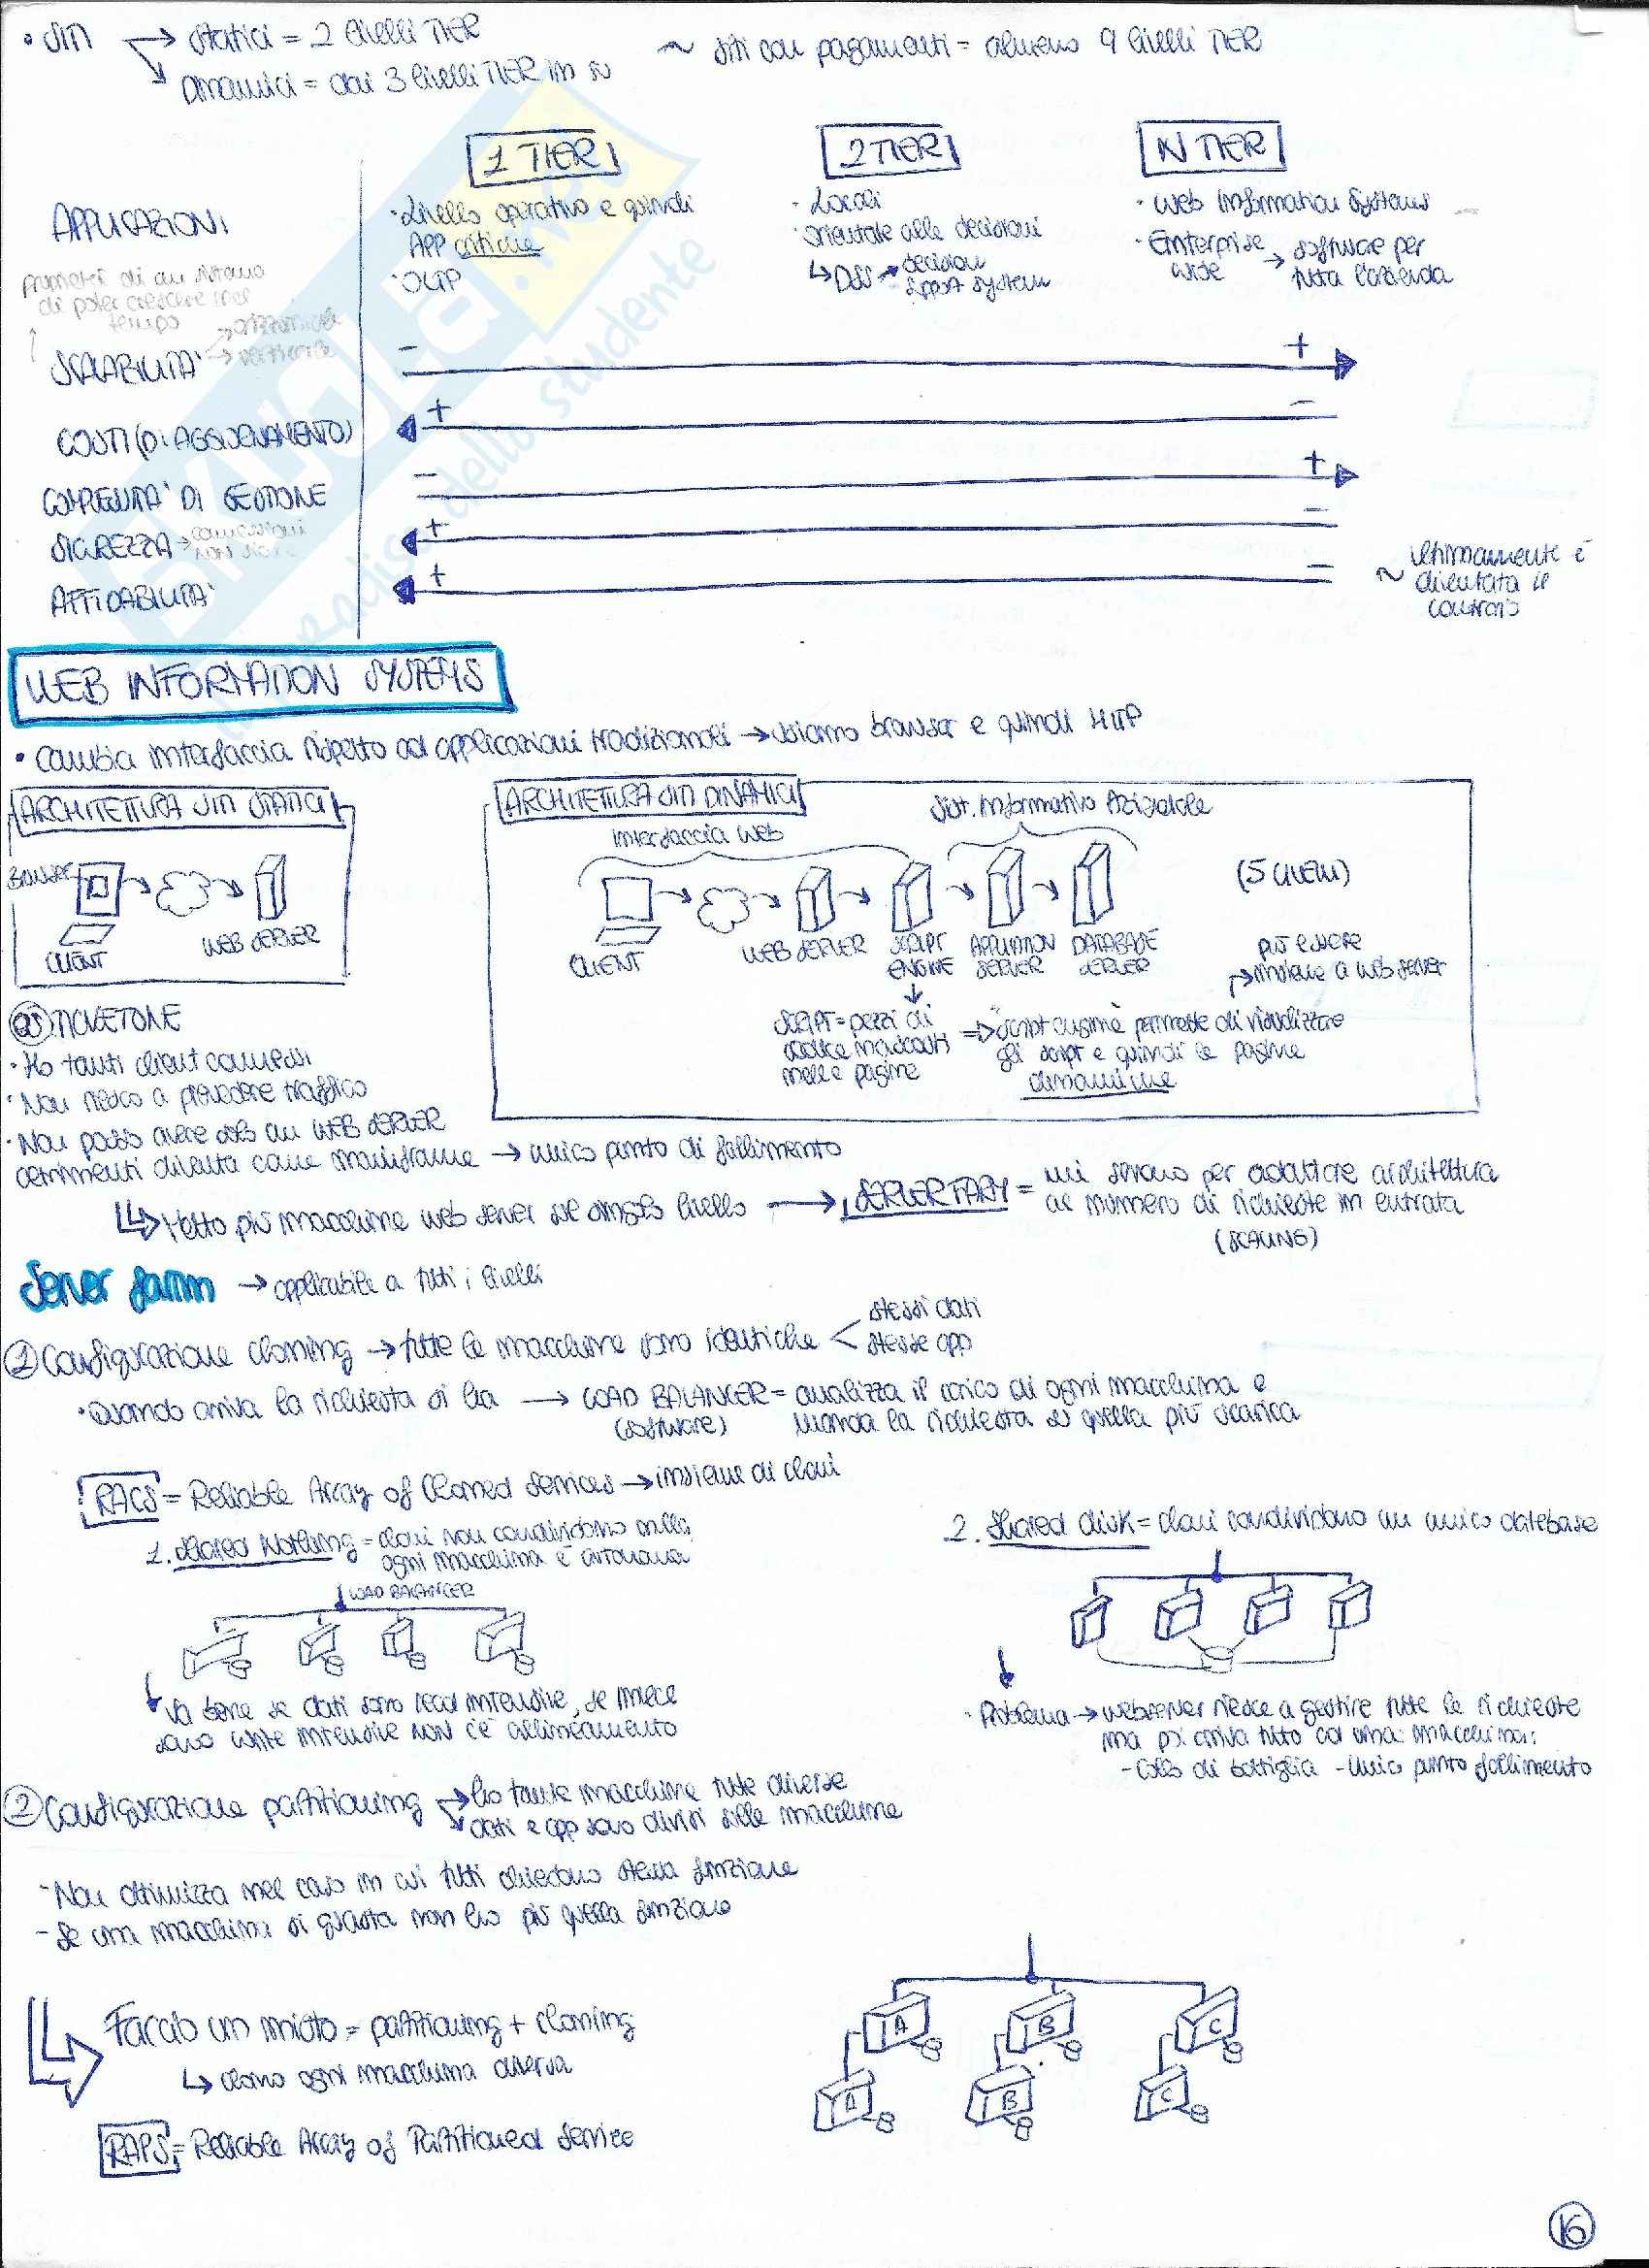 • SITI → statici = 2 livelli TIER
↘ dinamici = dai 3 livelli TIER in su
~ siti con pagamenti = almeno 9 livelli TIER
1 TIER
2 TIER
N TIER
APPLICAZIONI
· Livello operativo e quindi
APP critiche
· OLTP
· Locali
· orientate alle decisioni
↳ DSS → decision
support system
· Web Information Systems
· Enterprise wide → software per
tutta l'azienda
proprietà di un sistema
di poter crescere nel
tempo
SCALABILITA' → orizzontale
→ verticale
- +
COSTI (DI AGGIORNAMENTO)
+ -
COMPLESSITA' DI GESTIONE
- +
SICUREZZA → connessioni
non
+ -
AFFIDABILITA'
+ -
~ ultimamente è
diventata il
contrario
WEB INFORMATION SYSTEMS
• Cambia interfaccia rispetto ad applicazioni tradizionali → usiamo browser e quindi HTTP
ARCHITETTURA SITI STATICI
BROWSER
CLIENT
WEB SERVER
ARCHITETTURA SITI DINAMICI
Interfaccia Web
Sist. Informativo Aziendale
(5 LIVELLI)
CLIENT
WEB SERVER
SCRIPT
ENGINE
APPLICATION
SERVER
DATABASE
SERVER
può essere
insieme a web server
SCRIPT = pezzi di
codice incastrati
nelle pagine
⇒ Script engine permette di visualizzare
gli script e quindi le pagine
dinamiche
ES TICKETONE
· Ho tanti client connessi
· Non riesco a prevedere traffico
· Non posso avere solo un WEB SERVER
altrimenti diventa come mainframe → unico punto di fallimento
↳ Metto più macchine web server sul singolo livello → SERVER FARM = mi servono per adattare architettura
al numero di richieste in entrata
(SCALING)
Server farm → applicabile a tutti i livelli
① Configurazione cloning → tutte le macchine sono identiche < stessi dati
stesse app
· Quando arriva la richiesta si ha → LOAD BALANCER = analizza il carico di ogni macchina e
(software) manda la richiesta su quella più scarica
RACS = Reliable Array of Cloned Services → insieme di cloni
1. Shared Nothing = cloni non condividono nulla,
ogni macchina è autonoma
LOAD BALANCER
↓ Va bene se dati sono read intensive, se invece
sono write intensive NON c'è allineamento
2. Shared disk = cloni condividono un unico database
· Problema → webserver riesce a gestire tutte le richieste
ma poi arriva tutto ad una macchina:
- Collo di bottiglia - Unico punto fallimento
② Configurazione partitioning → ho tante macchine tutte diverse
↘ dati e app sono divisi sulle macchine
- Non ottimizza nel caso in cui tutti chiedono stessa funzione
- Se una macchina si guasta non ho più quella funzione
Faccio un misto = partitioning + cloning
↳ clono ogni macchina diversa
A
B
C
A
B
C
RAPS = Reliable Array of Partitioned Service
16